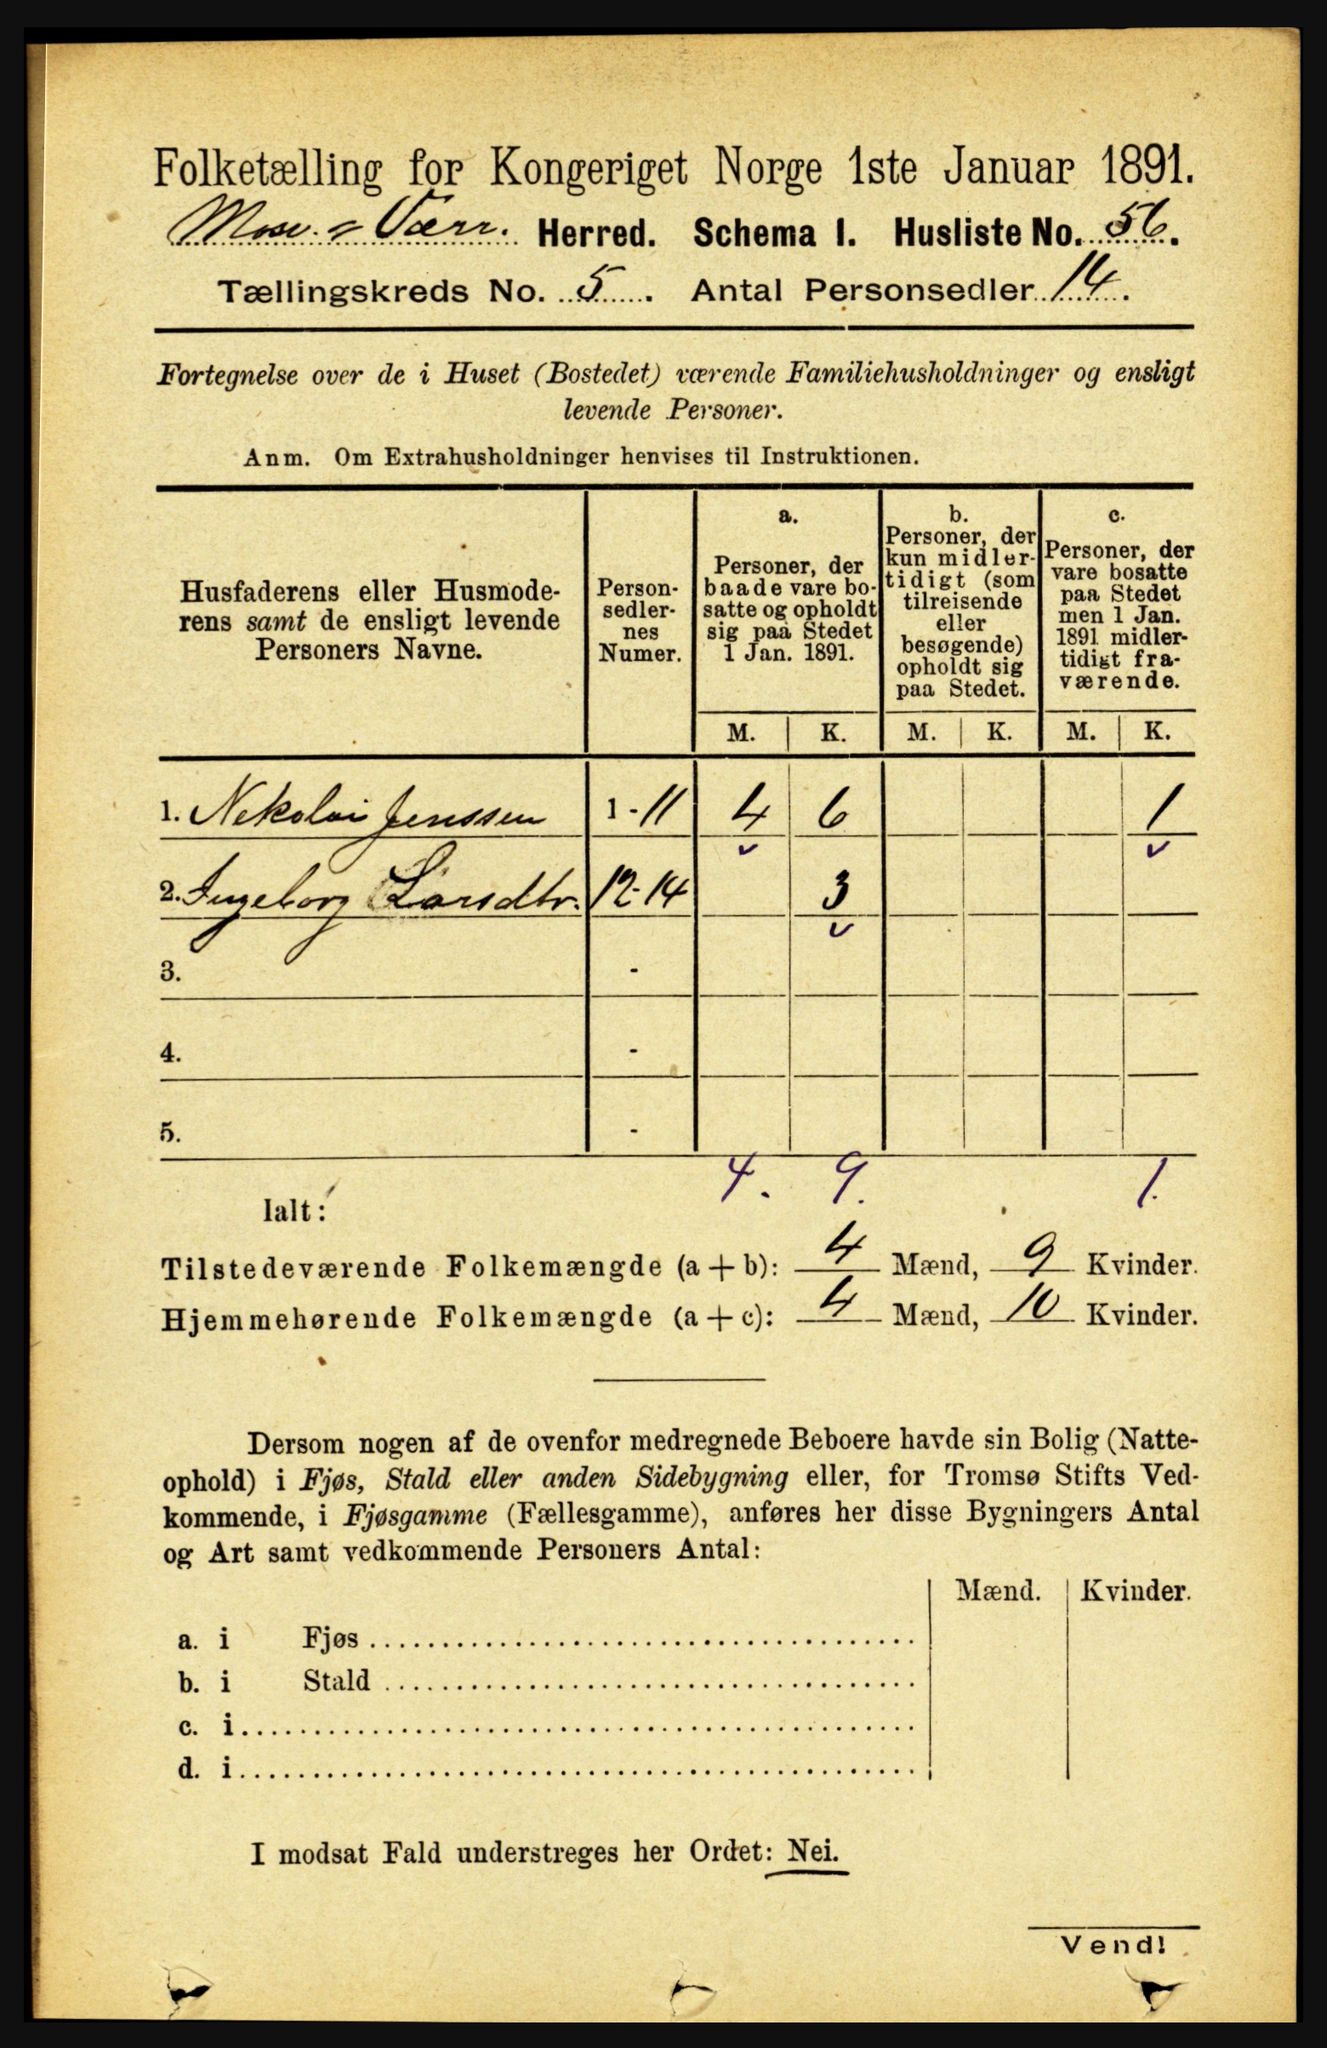 Folketælling for Kongeriget Norge 1ste Januar 1891.
Mosv. & Værr. Herred. Schema I. Husliste No. 56.
Tællingskreds No. 5. Antal Personsedler 14.
Fortegnelse over de i Huset (Bostedet) værende Familiehusholdninger og ensligt
levende Personer.
Anm. Om Extrahusholdninger henvises til Instruktionen.
Husfaderens eller Husmode-
rens samt de ensligt levende
Personers Navne.
Person-
sedler-
nes
Numer.
a.
Personer, der
baade vare bo-
satte og opholdt
sig paa Stedet
1 Jan. 1891.
b.
Personer, der
kun midler-
tidigt (som
tilreisende
eller
besøgende)
opholdt sig
paa Stedet.
c.
Personer, der
vare bosatte
paa Stedet
men 1 Jan.
1891 midler-
tidigt fra-
værende.
M. K. M. K. M. K.
1. Nekolai Jenssen 1-11 4 6 1
2. Ingeborg Larsdtr. 12-14 3
3. -
4. -
5. -
4. 9. 1.
Ialt:
Tilstedeværende Folkemængde (a + b): 4 Mænd, 9 Kvinder.
Hjemmehørende Folkemængde (a + c): 4 Mænd, 10 Kvinder.
Dersom nogen af de ovenfor medregnede Beboere havde sin Bolig (Natte-
ophold) i Fjøs, Stald eller anden Sidebygning eller, for Tromsø Stifts Ved-
kommende, i Fjøsgamme (Fællesgamme), anføres her disse Bygningers Antal
og Art samt vedkommende Personers Antal:
Mænd. Kvinder.
a. i Fjøs
b. i Stald
c. i
d. i
I modsat Fald understreges her Ordet: Nei.
Vend!